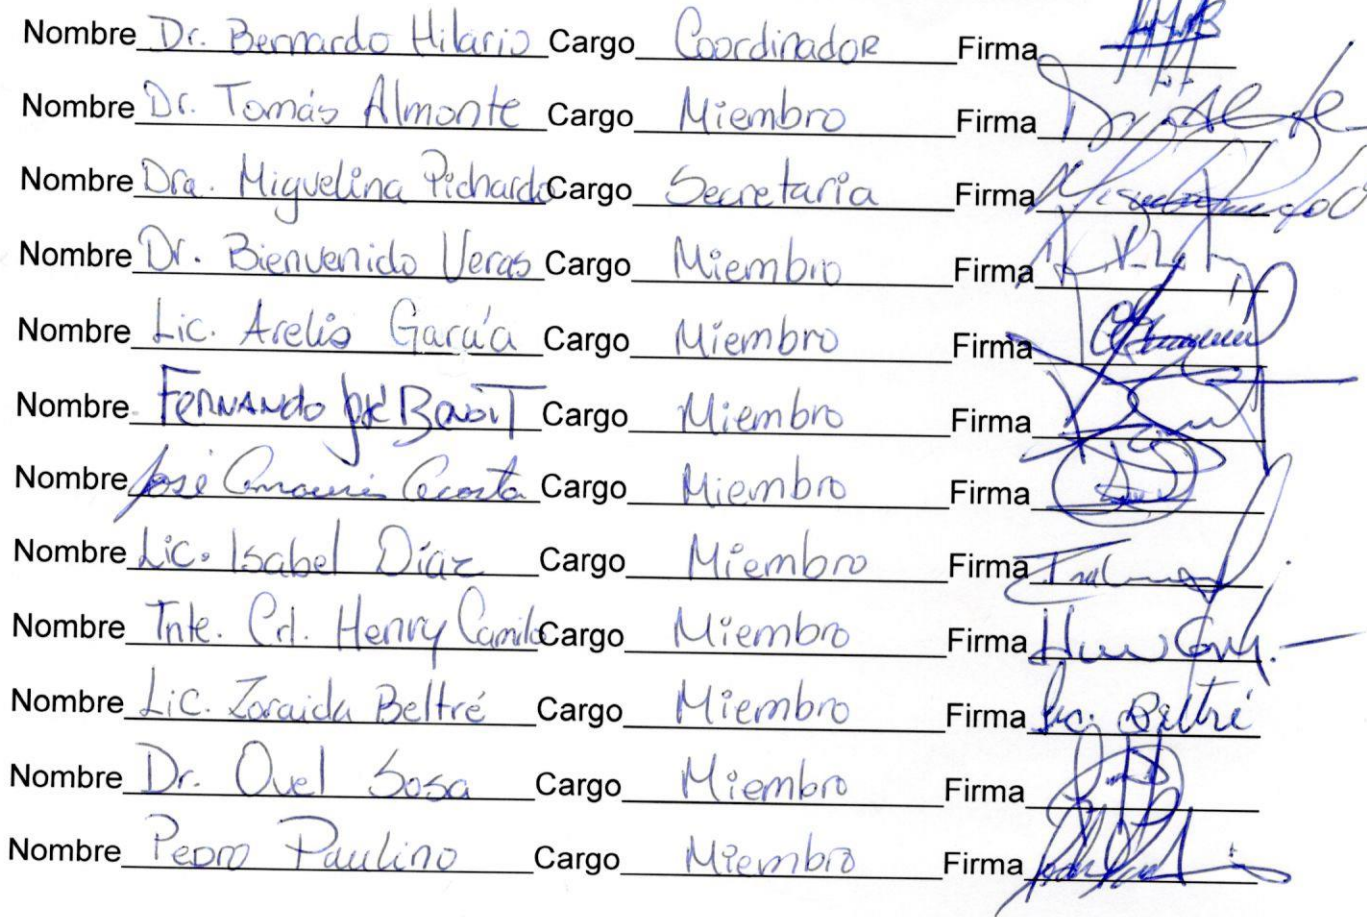 Nombre Dr. Bernardo Hilario Cargo Coordinador Firma
Nombre Dr. Tomás Almonte Cargo Miembro Firma
Nombre Dra. Miguelina Pichardo Cargo Secretaria Firma
Nombre Dr. Bienvenido Veras Cargo Miembro Firma
Nombre Lic. Arelis García Cargo Miembro Firma
Nombre FERNANDO José BENOIT Cargo Miembro Firma
Nombre José Acosta Cargo Miembro Firma
Nombre Lic. Isabel Díaz Cargo Miembro Firma
Nombre Tnte. Crl. Henry Camilo Cargo Miembro Firma
Nombre Lic. Zoraida Beltré Cargo Miembro Firma Lic. Beltré
Nombre Dr. Ovel Sosa Cargo Miembro Firma
Nombre Pedro Paulino Cargo Miembro Firma